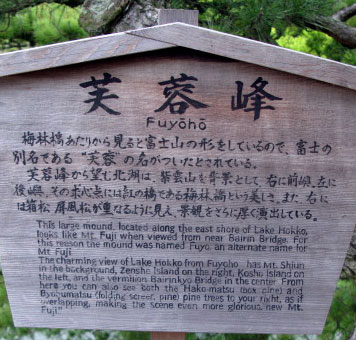 芙蓉峰
Fuyōhō
梅林橋あたりから見ると富士山の形をしているので、富士の
別名である“芙蓉”の名がついたとされている。
芙蓉峰から望む北湖は、紫雲山を背景として、右に前嶼、左に
後嶼、その来た中には紅の橋である梅林橋という美しさ。また右に
は箱松、屏風松が重なるように見え、景観をさらに厚く演出している。
This large mound, located along the east shore of Lake Hokko,
looks like Mt. Fuji when viewed from near Bairin Bridge. For
this reason the mound was named Fuyo, an alternate name for
Mt. Fuji.
The charming view of Lake Hokko from Fuyoho has Mt. Shiun
in the background, Zensho Island on the right, Kosho Island on
the left, and the vermilion Bairinkyo Bridge in the center. From
here you can also see both the Hako-matsu (box pine) and
Byobumatsu (folding screen, pine) pine trees to your right, as if
overlapping, making the scene even more glorious. new Mt.
Fuji."